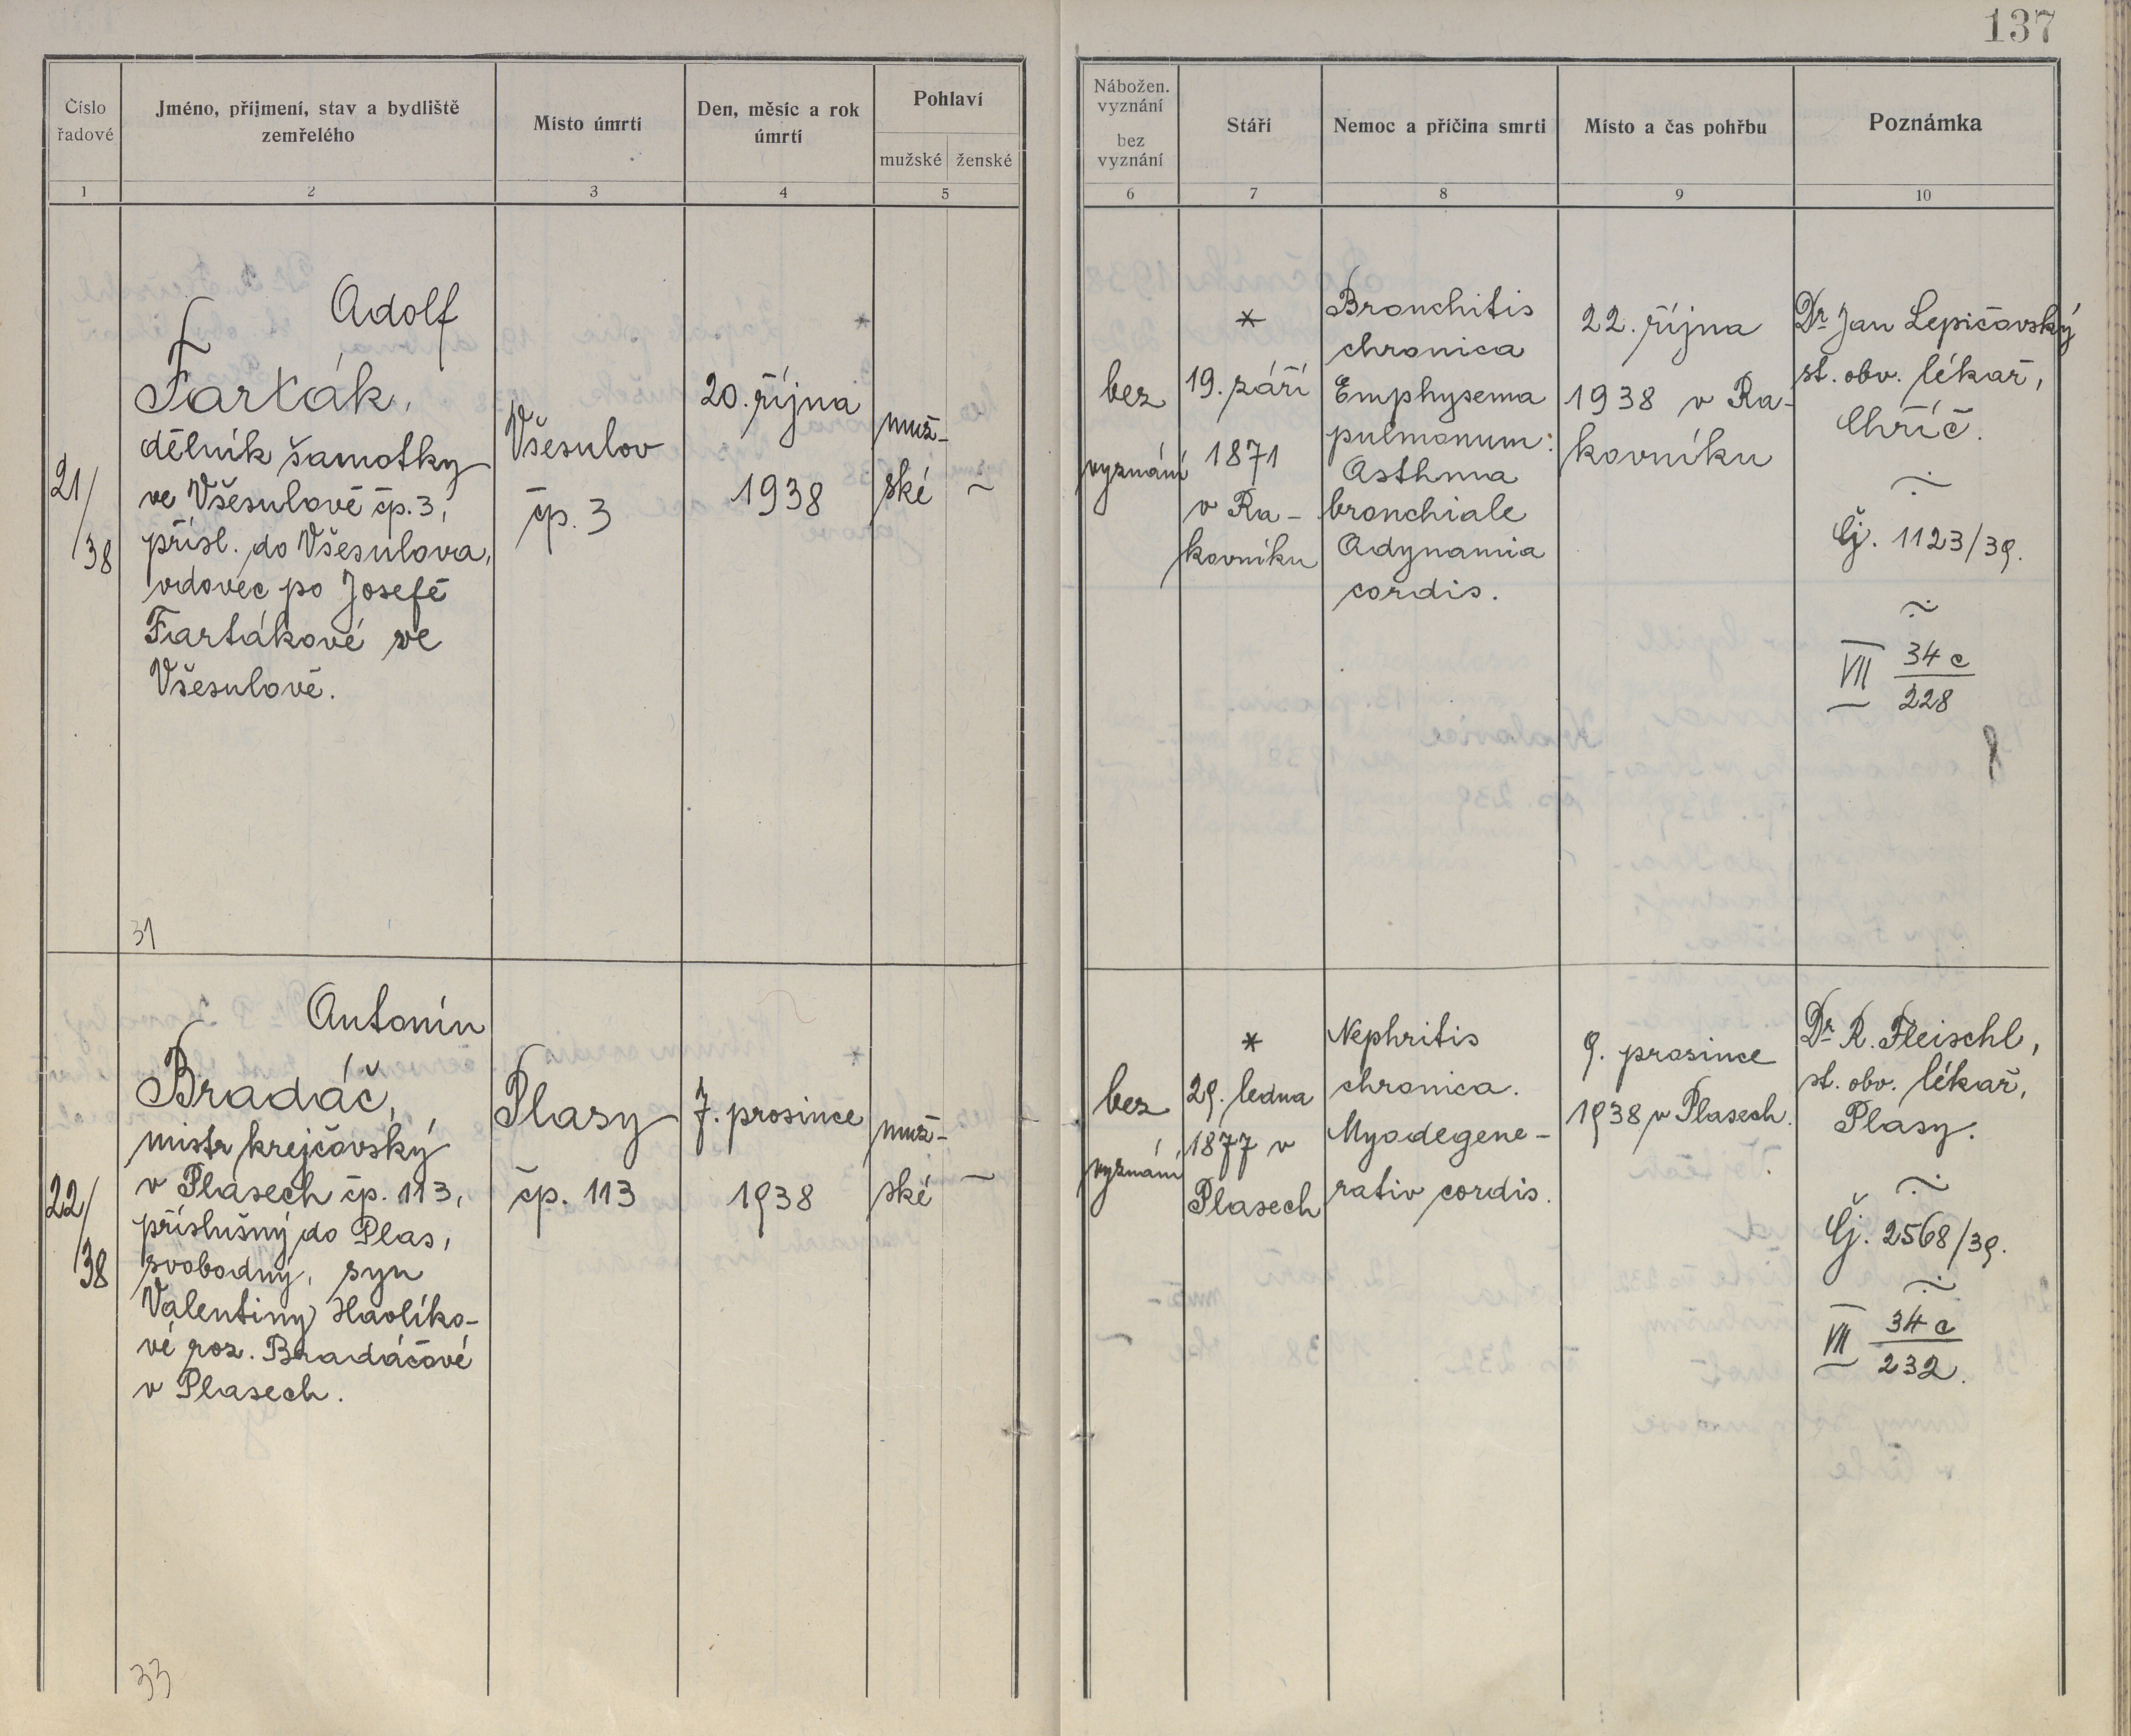 137
Číslo
řadové
Jméno, příjmení, stav a bydliště
zemřelého
Místo úmrtí
Den, měsíc a rok
úmrtí
Pohlaví
mužské
ženské
Nábožen.
vyznání
bez
vyznání
Stáří
Nemoc a příčina smrti
Místo a čas pohřbu
Poznámka
1
2
3
4
5
6
7
8
9
10
21/
/38
Adolf
Farták,
dělník šamotky
ve Všesulově čp. 3,
přísl. do Všesulova,
vdovec po Josefě
Fartákové ve
Všesulově.
31
Všesulov
čp. 3
20. října
1938
muž-
ské
~
bez
vyznání
*
19. září
1871
v Ra-
kovníku
Bronchitis
chronica
Emphysema
pulmonum:
Asthma
bronchiale
Adynamia
cordis.
22. října
1938 v Ra-
kovníku
Dr Jan Lepičovský
st. obv. lékař,
Chříč.
Čj. 1123/39.
VII 34 c
228
22/
/38
Antonín
Bradáč,
mistr krejčovský
v Plasech čp. 113,
příslušný do Plas,
svobodný, syn
Valentiny Havlíko-
vé roz. Bradáčové
v Plasech.
33
Plasy
čp. 113
7. prosince
1938
muž-
ské
~
bez
vyznání
*
29. ledna
1877 v
Plasech
Nephritis
chronica.
Myodegene-
rativ cordis.
9. prosince
1938 v Plasech.
Dr R. Fleischl,
st. obv. lékař,
Plasy.
Čj. 2568/39.
VII 34 c
232.